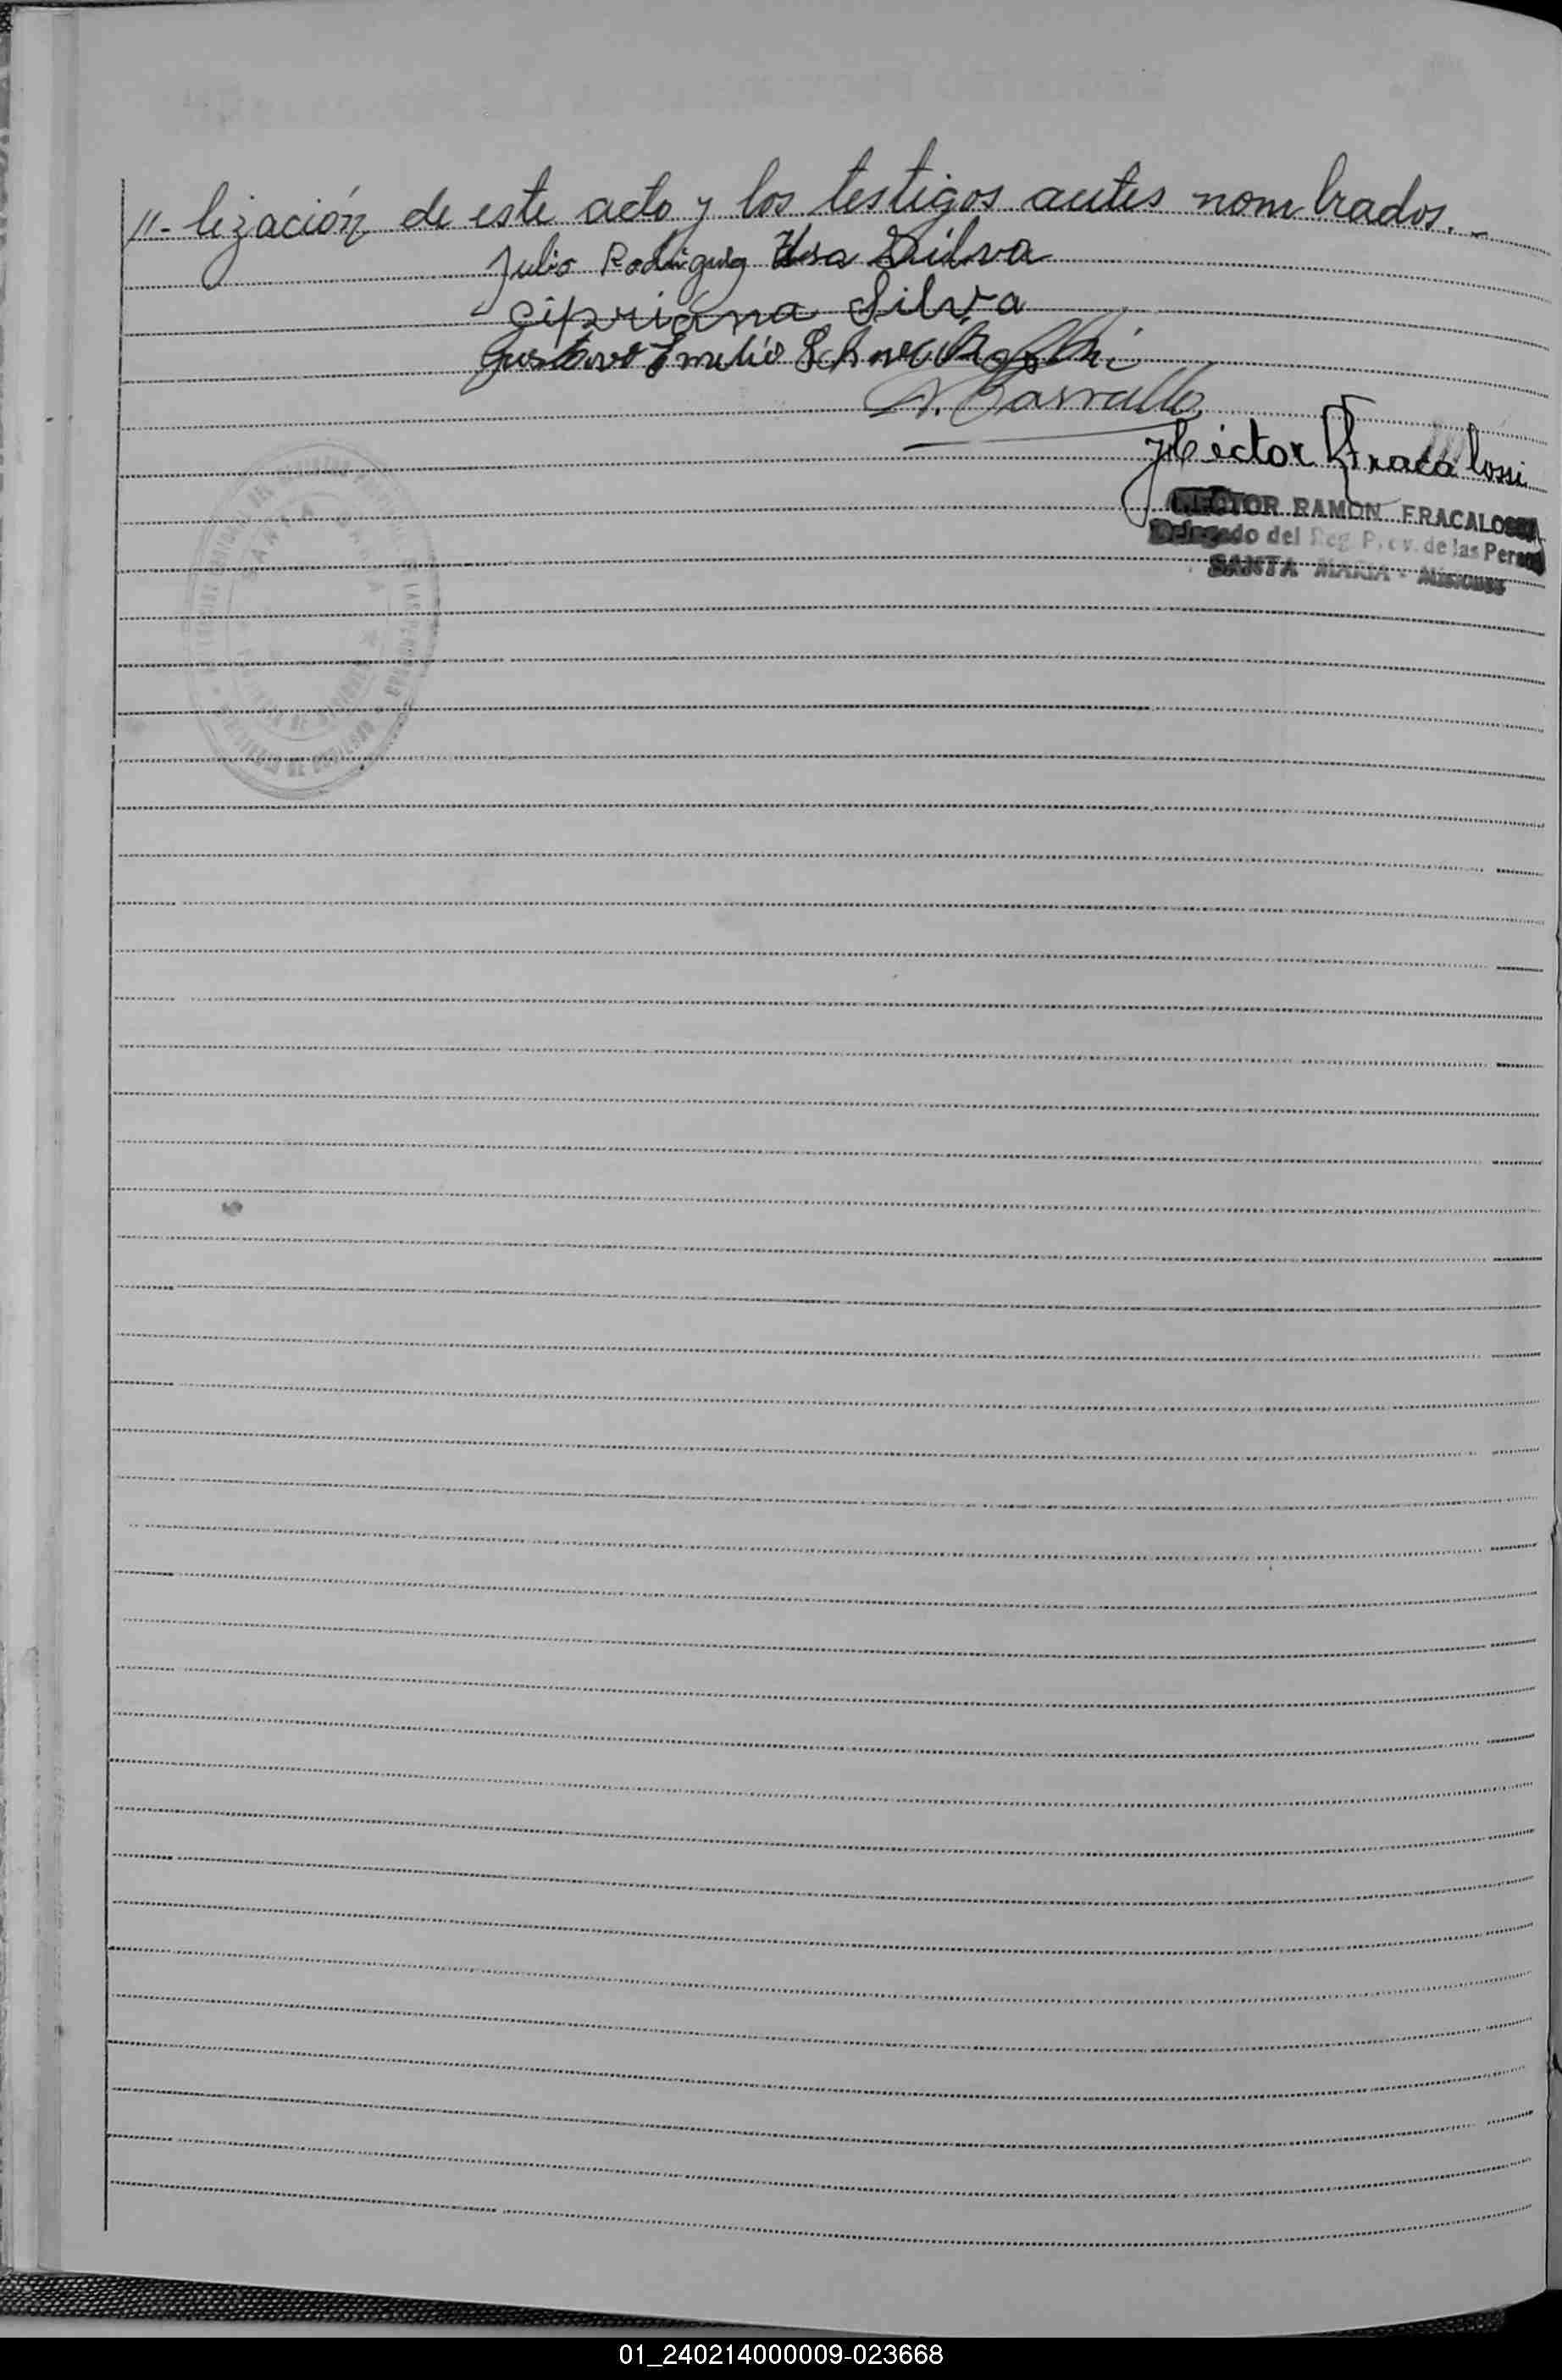 "- lización de este acto y los testigos antes nombrados. -
Julio Rodriguez Elsa Silva
Cipriana Silva
Gustavo Emilio
Hector R Fracalossi
HECTOR RAMON FRACALOSSI
Delegado del Reg. Prov. de las Person
SANTA MARIA - Misiones
SANTA MARIA
01_240214000009-023668